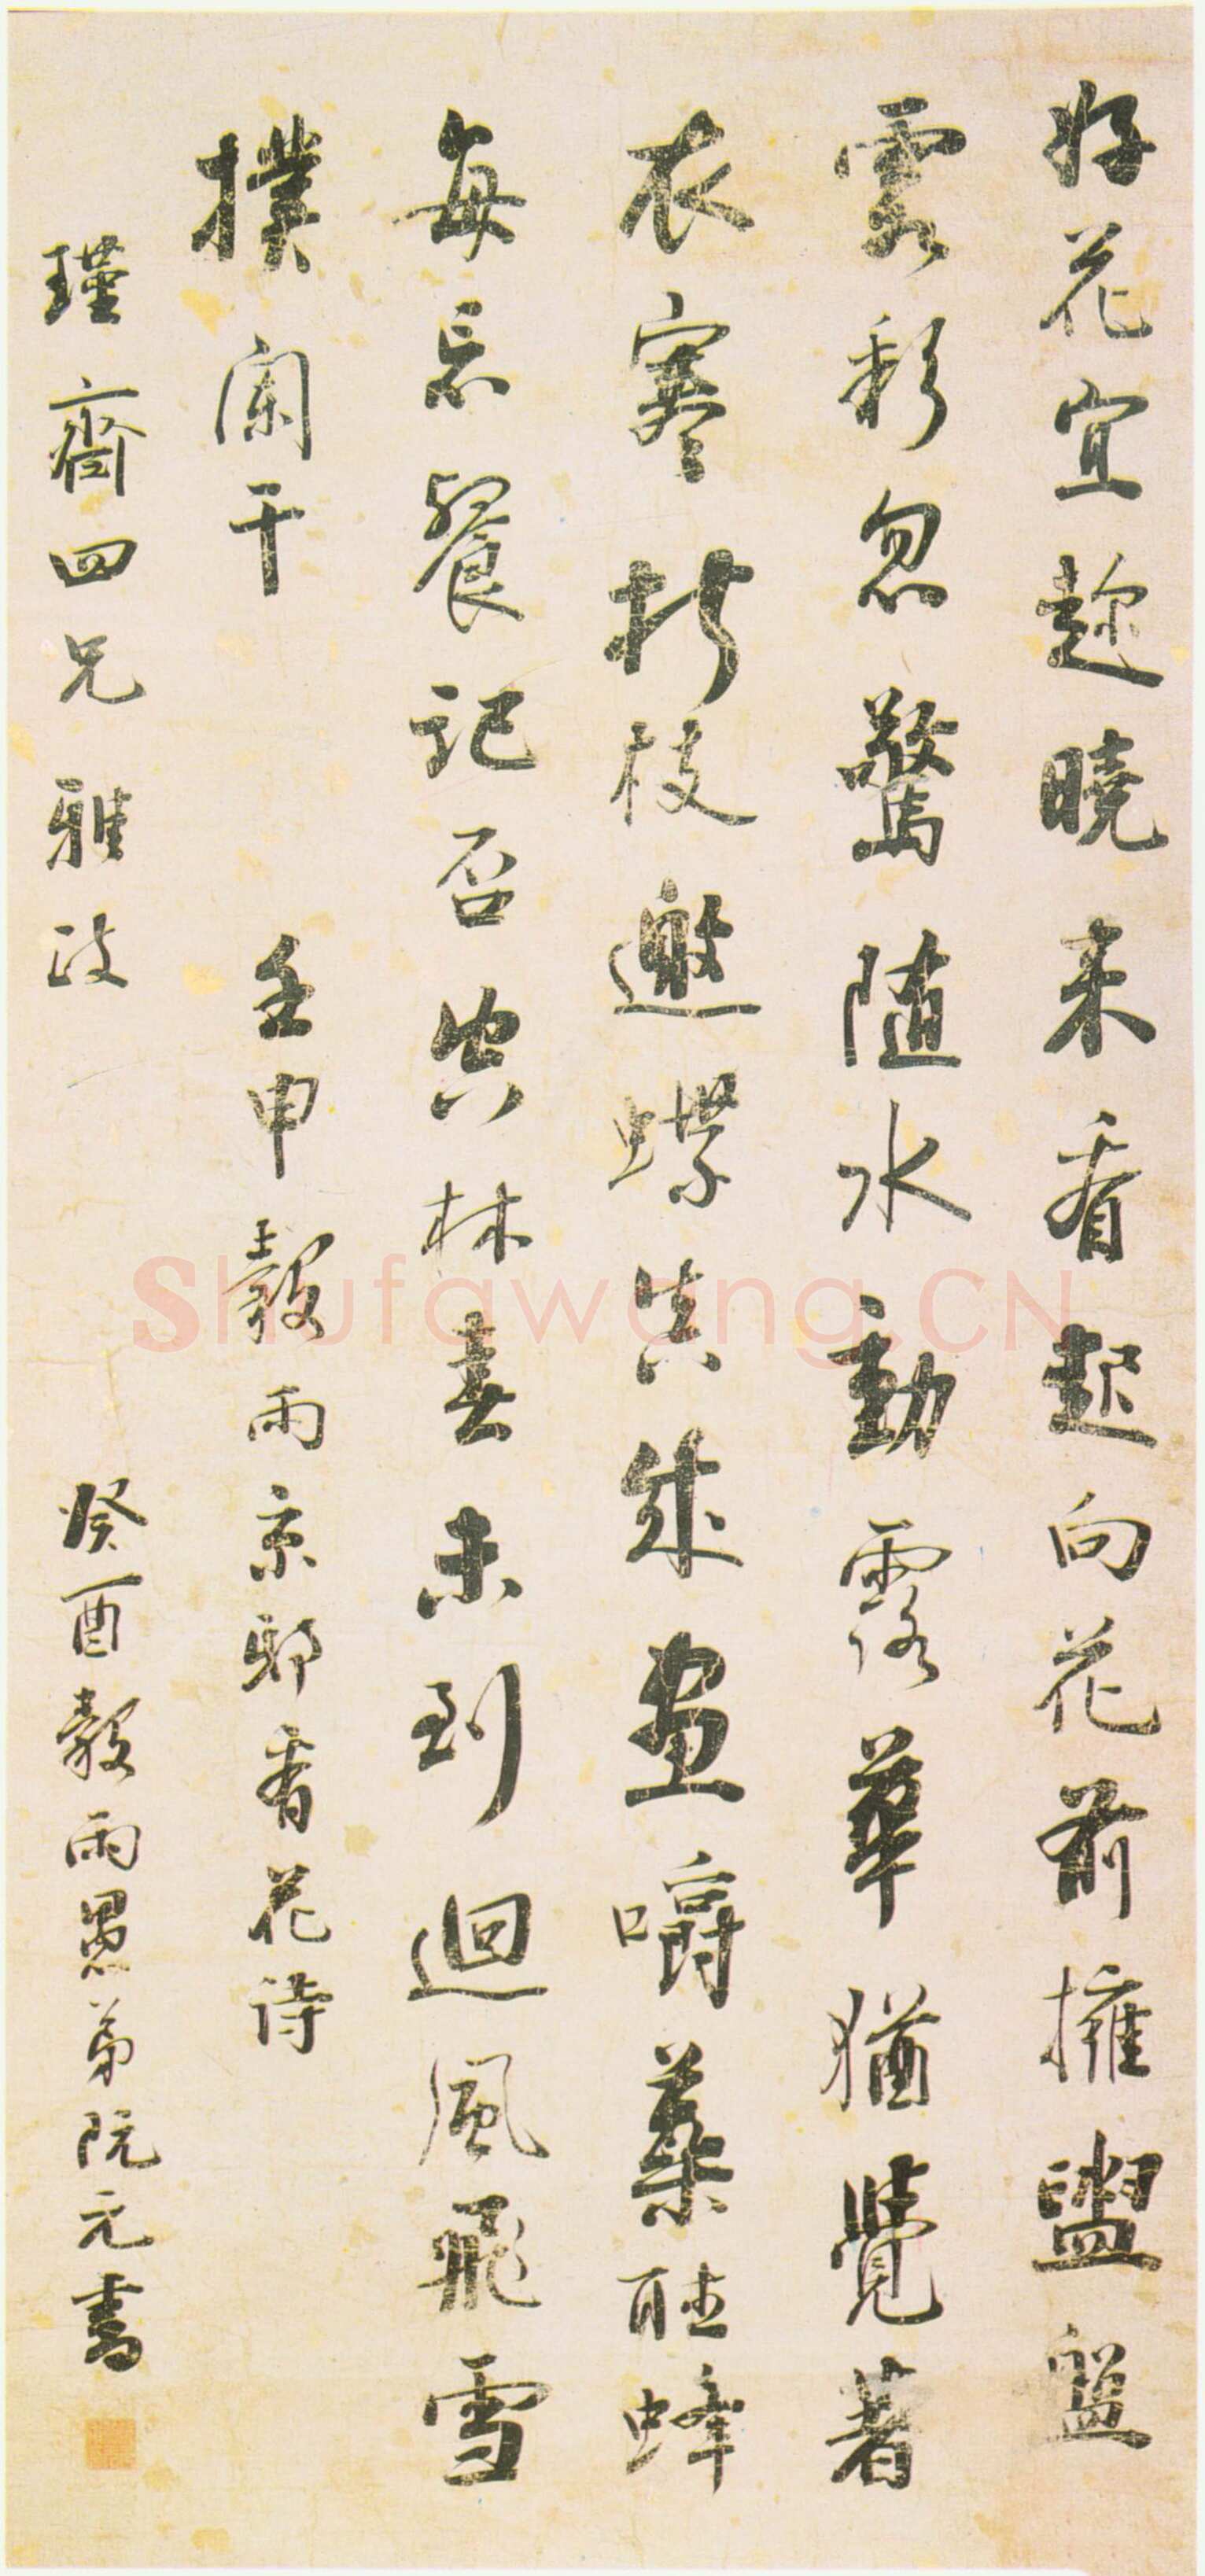 好花宜趂曉来看起向花前擁盥盤
雲彩忽驚随水動露華猶覺著
衣寒折枝邀蝶真成畫嚼蘂聴蜂
每忘餐記否空林春未到迴風飛雪
撲闌干 壬申穀雨京邸看花詩
瑾齋四兄雅政 癸酉穀雨愚弟阮元書
Shufawang.CN